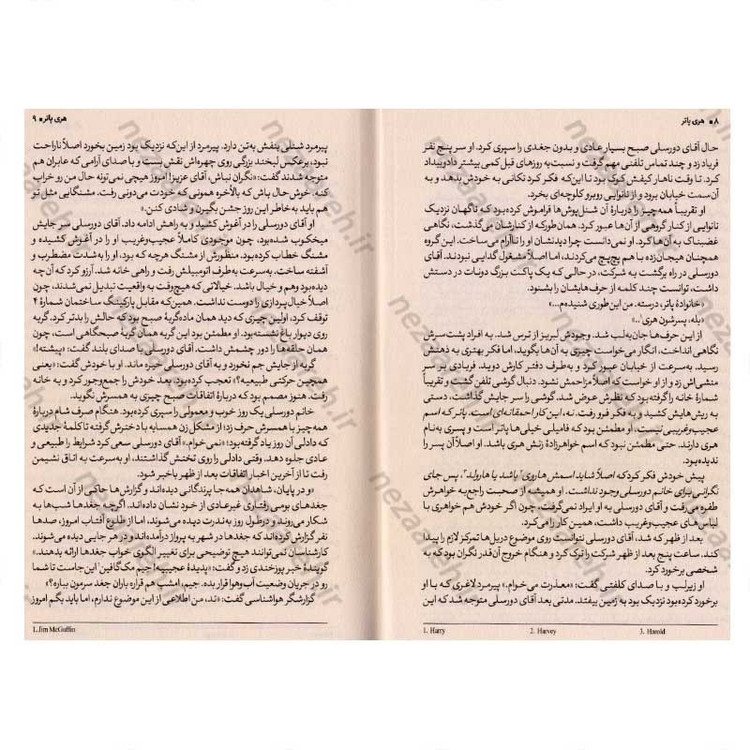 ۸ ■ هری پاتر
حال آقای دورسلی صبح بسیار عادی و بدون جغدی را سپری کرد. او سر پنج نفر
فریاد زد و چند تماس تلفنی مهم گرفت و نسبت به روزهای قبل کمی بیشتر داد و بیداد
کرد. تا وقت ناهار کیفش کوک بود تا این‌که فکر کرد تکانی به خودش بدهد و به
آن سمت خیابان برود و از نانوایی روبرو کلوچه‌ای بخرد.
او تقریباً همه‌چیز را دربارهٔ آن شنل‌پوش‌ها فراموش کرده بود که ناگهان نزدیک
نانوایی از کنار گروهی از آن‌ها عبور کرد. همان‌طور که از کنارشان می‌گذشت، نگاهی
غضبناک به آن‌ها کرد. او نمی‌دانست چرا دیدنشان او را ناآرام می‌ساخت. این گروه
همچنان هیجان‌زده با هم پچ‌پچ می‌کردند، اما اصلاً مشغول گدایی نبودند. آقای
دورسلی در راه برگشت به شرکت، در حالی که یک پاکت بزرگ دونات در دستش
داشت، توانست چند کلمه از حرف‌هایشان را بشنود.
«خانوادهٔ پاتر، درسته. من این‌طوری شنیده‌م...»
«بله، پسرشون هری۱...»
از این حرف‌ها جان‌به‌لب شد. وجودش لبریز از ترس شد. به افراد پشت‌سرش
نگاهی انداخت، انگار می‌خواست چیزی به آن‌ها بگوید، اما فکر بهتری به ذهنش
رسید. به‌سرعت از خیابان عبور کرد و به‌طرف دفتر کارش دوید. فریادی بر سر
منشی‌اش زد و از او خواست که اصلاً مزاحمش نشود. دنبال گوشی تلفن گشت و تقریباً
شمارهٔ خانه را گرفته بود که نظرش عوض شد. گوشی را سر جایش گذاشت، دستی
به ریش‌هایش کشید و به فکر فرو رفت. نه، این کار احمقانه‌ای است. پاتر که اسم
عجیب‌وغریبی نیست. او مطمئن بود که فامیلی خیلی‌ها پاتر است و پسری به‌نام
هری دارند. حتی مطمئن نبود که اسم خواهرزادهٔ زنش هری باشد. او اصلاً آن پسر را
ندیده بود.
پیش خودش فکر کرد که اصلاً شاید اسمش هاروی۲ باشد یا هارولد۳. پس جای
نگرانی برای خانم دورسلی وجود نداشت. او همیشه از صحبت راجع‌به خواهرش
طفره می‌رفت و آقای دورسلی به او ایراد نمی‌گرفت، چون اگر خودش هم خواهری با
لباس‌های عجیب‌وغریب داشت، همین کار را می‌کرد.
بعد از ظهر که شد، آقای دورسلی نتوانست روی موضوع دریل‌ها تمرکز لازم را پیدا
کند. ساعت پنج بعد از ظهر شرکت را ترک کرد و هنگام خروج آن‌قدر نگران بود که به
شخصی برخورد کرد.
او زیرلب و با صدای کلفتی گفت: «معذرت می‌خوام.» پیرمرد لاغری که با او
برخورد کرده بود نزدیک بود به زمین بیفتد. مدتی بعد آقای دورسلی متوجه شد که این
1. Harry 2. Harvey 3. Harold
هری پاتر ■ ۹
پیرمرد شنلی بنفش به‌تن دارد. پیرمرد از این‌که نزدیک بود زمین بخورد اصلاً ناراحت
نبود، برعکس لبخند بزرگی روی چهره‌اش نقش بست و با صدای آرامی که عابران هم
متوجه شدند گفت: «نگران نباش، آقای عزیز! امروز هیچی نمی‌تونه حال من رو خراب
کنه. خوش‌حال باش که بالأخره همونی که خودت می‌دونی رفت. مشنگایی مثل تو
هم باید به‌خاطر این روز جشن بگیرن و شادی کنن.»
او آقای دورسلی را در آغوش کشید و به راهش ادامه داد. آقای دورسلی سر جایش
میخکوب شده بود، چون موجودی کاملاً عجیب‌وغریب او را در آغوش کشیده و
مشنگ خطاب کرده بود. منظورش از مشنگ هرچه که بود، او را به‌شدت مضطرب و
آشفته ساخت. به‌سرعت به‌طرف اتومبیلش رفت و راهی خانه شد. آرزو کرد که آن‌چه
دیده بود وهم و خیال باشد. خیالاتی که هیچ‌وقت به واقعیت تبدیل نمی‌شدند، چون
اصلاً خیال‌پردازی را دوست نداشت. همین‌که مقابل پارکینگ ساختمان شمارهٔ ۴
توقف کرد، اولین چیزی که دید همان ماده‌گربهٔ صبح بود که حالش را بدتر کرد. گربه
روی دیوار باغ نشسته بود. او مطمئن بود این گربه همان گربهٔ صبحگاهی است، چون
همان حلقه‌ها را دور چشمش داشت. آقای دورسلی با صدای بلند گفت: «پیشته!»
گربه از جایش جم نخورد و به آقای دورسلی خیره ماند. او با خودش گفت: «یعنی
همچین حرکتی طبیعیه؟» تعجب کرده بود. بعد خودش را جمع‌وجور کرد و به خانه
رفت. هنوز مصمم بود که دربارهٔ اتفاقات صبح چیزی به همسرش نگوید.
خانم دورسلی یک روز خوب و معمولی را سپری کرد. هنگام صرف شام دربارهٔ
همه‌چیز با همسرش حرف زد؛ از مشکل زن همسایه با دخترش گرفته تا کلمهٔ جدیدی
که دادلی آن روز یاد گرفته بود: «نمی‌خوام.» آقای دورسلی سعی کرد شرایط را طبیعی و
عادی جلوه دهد. وقتی دادلی را روی تختش گذاشتند، او به‌سرعت به اتاق نشیمن
رفت تا از آخرین اخبار اتفاقات بعد از ظهر باخبر شود.
«و در پایان، شاهدان همه‌جا پرندگانی دیده‌اند و گزارش‌ها حاکی از آن است که
جغدهای بومی رفتاری غیرعادی از خود نشان داده‌اند. اگرچه جغدها شب‌ها به
شکار می‌روند و درطول روز به‌ندرت دیده می‌شوند، اما از طلوع آفتاب امروز، صدها
نفر گزارش کرده‌اند که جغدها در شهر به پرواز درآمده‌اند و در هر جایی دیده می‌شوند.
کارشناسان نمی‌توانند هیچ توضیحی برای تغییر الگوی خواب جغدها ارائه دهند.»
گویندهٔ خبر پوزخندی زد و گفت: «پدیدهٔ عجیبیه! جیم مک‌گافین۱ این‌جاست تا شما
رو در جریان وضعیت آب‌وهوا قرار بده. جیم، امشب هم قراره باران جغد سرمون بباره؟»
گزارشگر هواشناسی گفت: «تد، من اطلاعی از این موضوع ندارم، اما باید بگم امروز
1. Jim McGuffin
nezaaehteh.ir